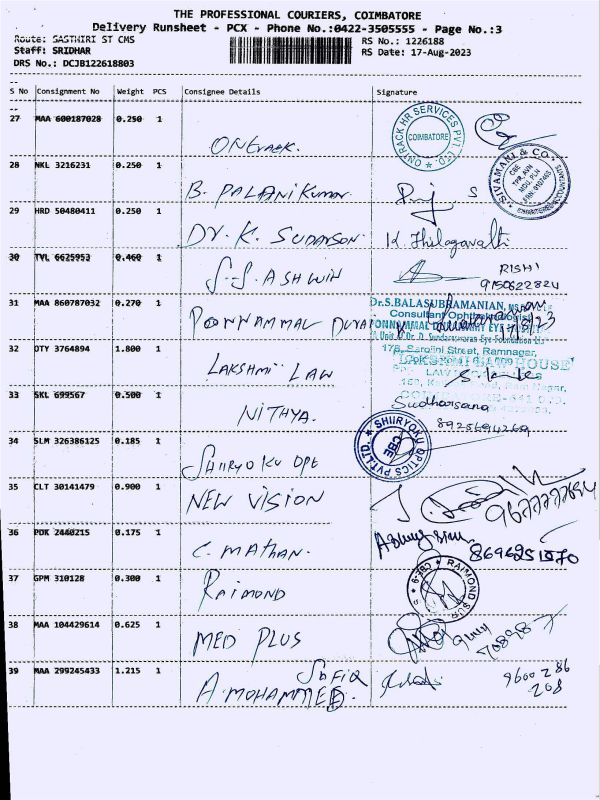 THE PROFESSIONAL COURIERS, COIMBATORE
Delivery Runsheet - PCX - Phone No.:0422-3505555 - Page No.:3
Route: SASTHIRI ST CMS RS No.: 1226188
Staff: SRIDHAR RS Date: 17-Aug-2023
DRS No.: DCJB122618803
S No Consignment No Weight PCS Consignee Details Signature
27 MAA 600187028 0.250 1
ONTRACK HR SERVICES PVT. LTD. COIMBATORE
ONtrack.
28 NKL 3216231 0.250 1
SIVAMANI & CO. CHARTERED ACCOUNTANTS
B. PALANIKUMAR
29 HRD 50480411 0.250 1
DV. K. SUDARSON K. Thilagavathi
30 TVL 6625953 0.460 1
S.S. ASHWIN RISHI
9150622824
31 MAA 860787032 0.270 1 Dr.S.BALASUBRAMANIAN,
Consultant Ophthalmologist
PONNAMMAL DURAI
A Unit of Dr. D. Sundareswaran Eye Foundation
32 OTY 3764894 1.800 1 178, Sarojini Street, Ramnagar,
LAKSHMI LAW LAKSHMI LAW HOUSE
33 SKL 699567 0.500 1
NITHYA. Sudharsana
8925694269
34 SLM 326386125 0.185 1 SHIIRYOKU OPTICS PVT.LTD. CBE
SHIIRYOKU OPT
35 CLT 30141479 0.900 1
NEW VISION
36 PDK 2440215 0.175 1
C. MATHAN. 8696251970
37 GPM 310128 0.300 1 RAIMOND CBE-9
RAIMOND
38 MAA 104429614 0.625 1
MED PLUS
39 MAA 299245433 1.215 1 SAFIQ 9600286
A. MOHAMMED 208